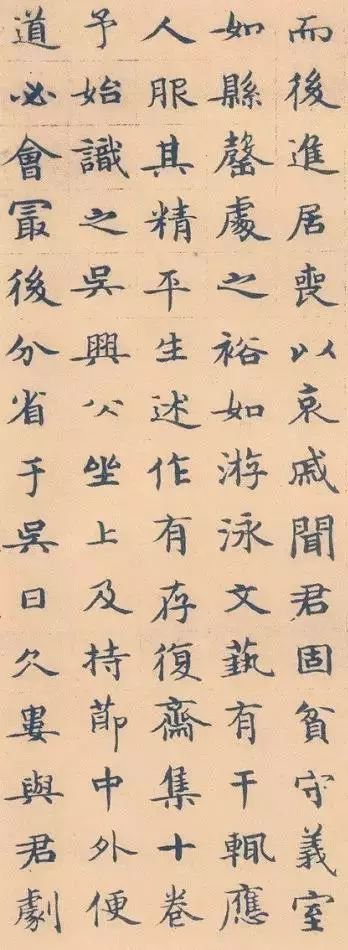 而後進居喪以哀戚聞君固貧守義室
如縣罄處之裕如游泳文藝有干輒應
人服其精平生述作有存復齋集十卷
予始識之吳興公坐上及持節中外便
道必會冣後分省于吳日久婁與君劇